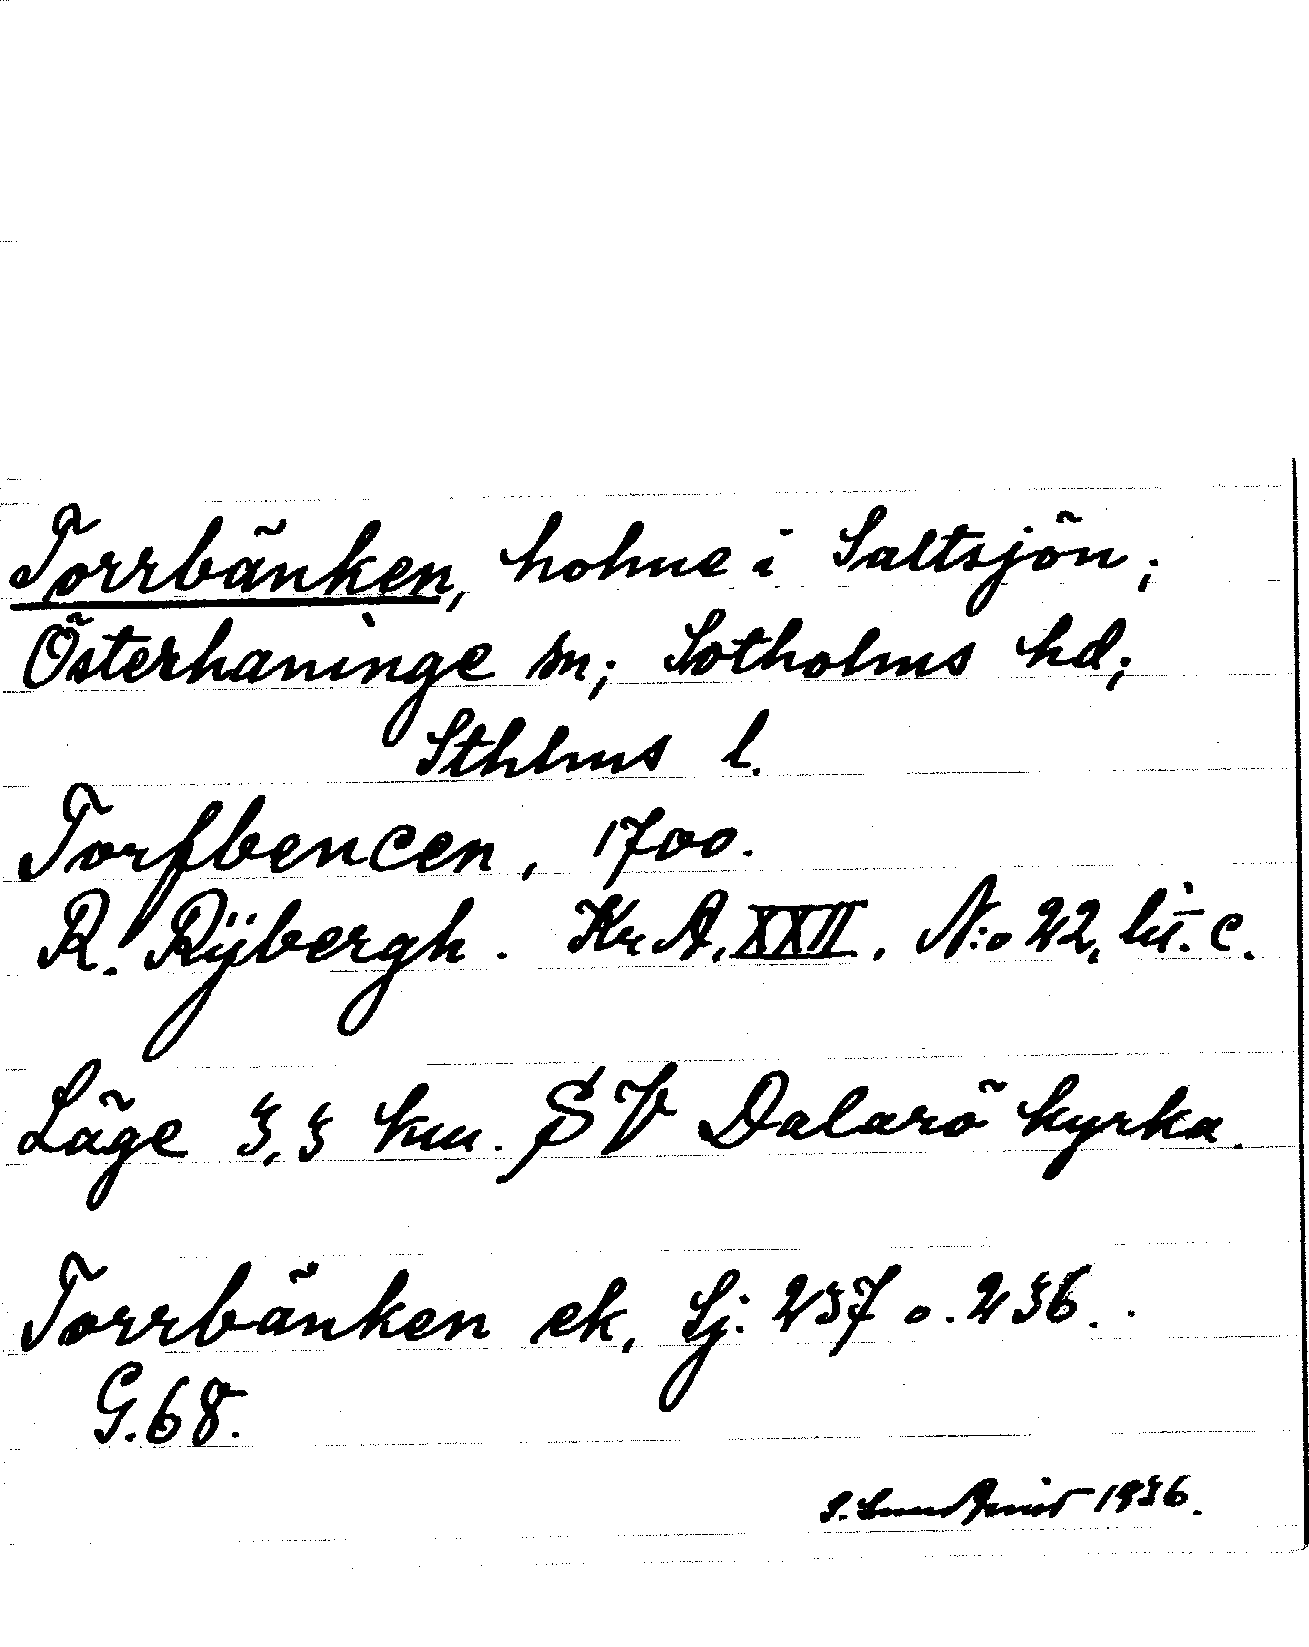 Torrbänken, holme i Saltsjön;
Österhaninge sn; Sotholms hd;
Sthlms l.
Torfbencen, 1700.
R. Rÿbergh. Kr A. XXII. N:o 22, lit. c.
Läge 3,3 km. SV Dalarö kyrka.
Torrbänken ek. Sj. 237 o. 236.
G. 68.
S. Lundqvist 1936.